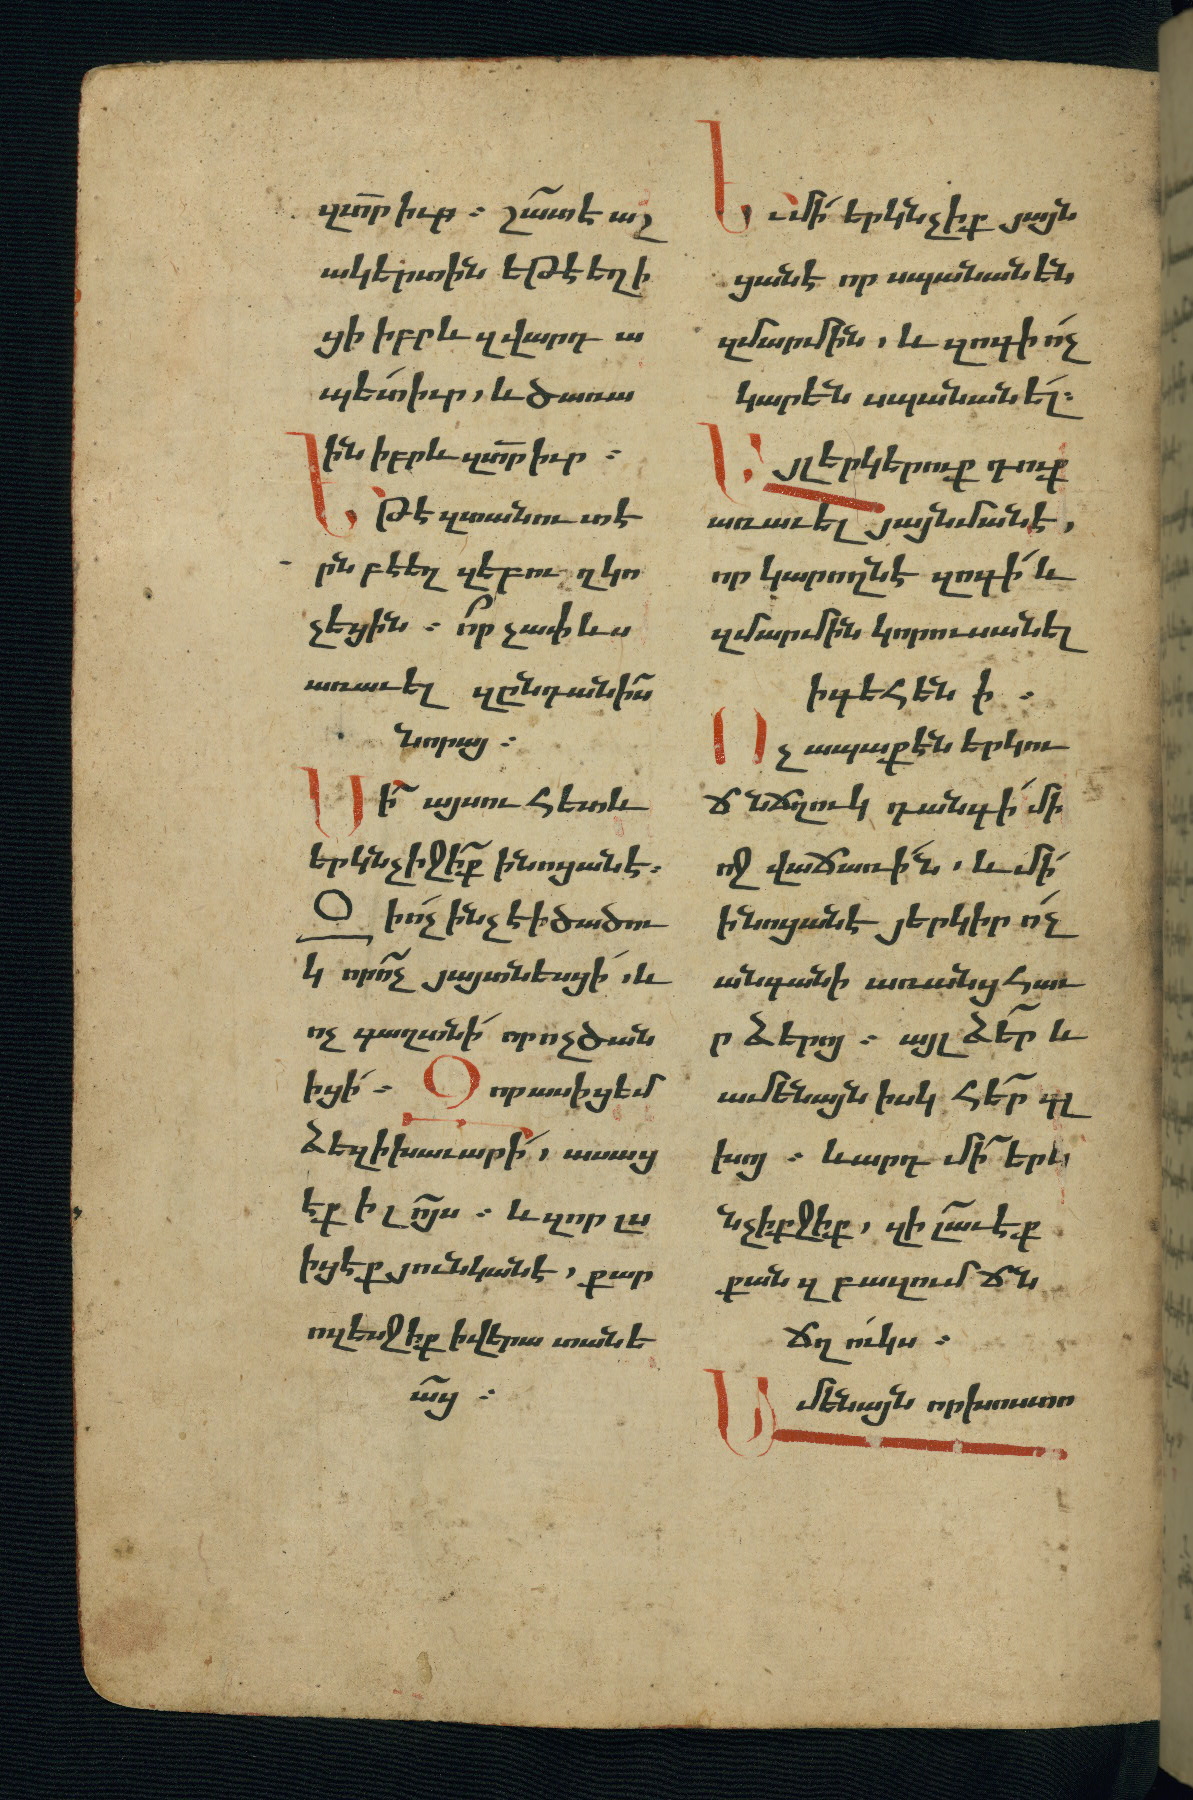 զտ̅ր իւր ։ շատ է աշ
ակերտին եթէ եղի
ցի իբրև զվարդ ա
պետ իւր, և ծառա
յին իբրև զտ̅ր իւր ։
Եթէ զտանուտէ
րն բէեղ զեբու ղ կո
չեցին ։ ո՞րչափ ևս
առաւել զընդանիս
նորայ ։
Մի՛ այսու հետև
երկնչիջի՛ք ի նոցանէ ։
Զի ո՛չ ինչ է ի ծածու
կ որ ո՛չ յայտնեսցի՛, և
ոչ գաղտնի՛ որ ոչ ծան
իցի՛ ։ Զոր ասիցեմ
ձեզ ի խաւարի՛, ասաց
էք ի լոյս ։ և զոր լս
իցէք յունկանէ, քար
ոզեսջիք ի վերա տանե
աց ։
Եւ մի՛ երկնչիք յայն
ցանէ որ սպանանեն
զմարմին, և զոգի ո՛չ
կարեն սպանանել։
Այլ երկերուք դուք
առաւել յայնմանէ,
որ կարողնէ զոգի՛ և
զմարմին կորուսանել
ի գեհեն ի ։
Ոչ ապաքէն երկու
ճնճղուկ դանգի՛ մի
ոջ վաճառի՛ն, և մի՛
ի նոցանէ յերկիր ո՛չ
անգանի առանց հաւ
ր ձերոյ ։ այլ ձե՛ր և
ամենայն իսկ հե՛ր գլ
խոյ ։ և արդ մի՛ երկ
նչիքջիք, զի լաւ էք
քան զ բազում ճն
ճղ ուկս ։
Ամենայն որ խոստո